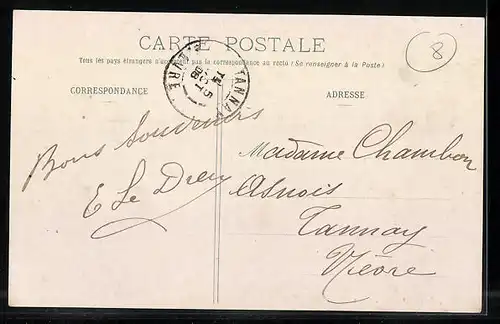 CARTE POSTALE
Tous les pays étrangers n'acceptent pas la correspondance au recto (Se renseigner à la Poste)
CORRESPONDANCE
ADRESSE
8
TANNAY
NIÈVRE
5
OCT
08
Bons Souvenirs
E Le Dreu
Madame Chambon
Asnois
Tannay
Nièvre